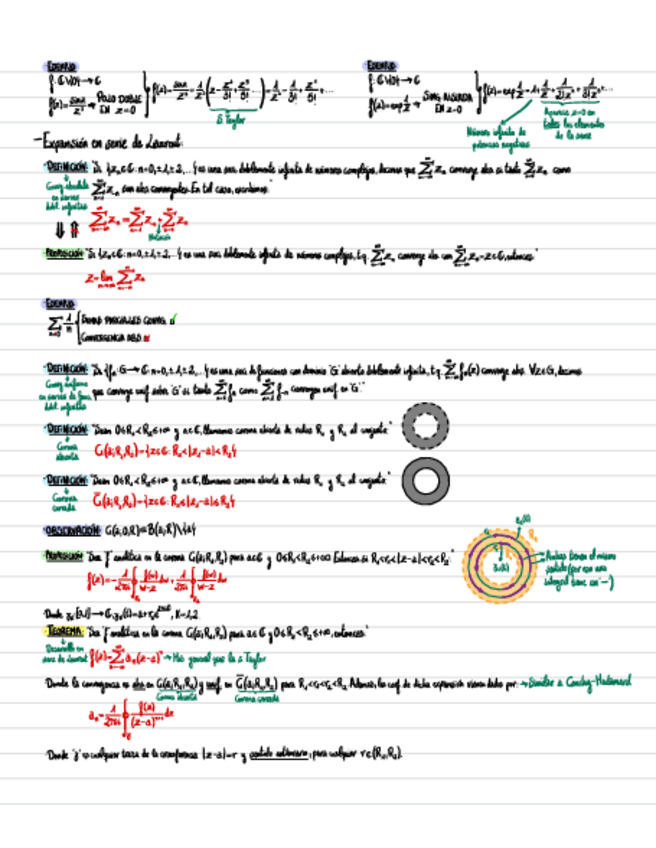 ·EJEMPLO:
f: C\{0}→C
f(z)=senz/z³ → POLO DOBLE EN z=0
f(z)=senz/z³=1/z³(z-z³/3!+z⁵/5!...)=1/z²-1/3!+z²/5!+...
S. Taylor
·EJEMPLO:
f: C\{0}→C
f(z)=exp 1/z → SING. AISLADA EN z=0
f(z)=exp 1/z=1+1/z+1/2!z²+1/3!z³+...
Número infinito de potencias negativas
Aparece z=0 en todos los elementos de la serie
-Expansión en serie de Laurent:
·DEFINICIÓN: "Si {zₙ∈C: n=0,±1,±2,...} es una suc. doblemente infinita de números complejos, decimos que Σzₙ converge abs. si tanto Σzₙ como
Σz₋ₙ son abs. convergentes. En tal caso, escribimos:
Conv. absoluta en series dobl. infinitas
Σzₙ=Σz₋ₙ+Σzₙ
Notación
·PROPOSICIÓN: "Si {zₙ∈C: n=0,±1,±2,...} es una suc. doblemente infinita de números complejos, t.q. Σzₙ converge abs. con Σzₙ=z∈C, entonces:"
z=lim Σzₙ
·EJEMPLO:
Σ1/n
SUMAS PARCIALES CONVG. ✓
CONVERGENCIA ABS. ✗
·DEFINICIÓN: "Si {fₙ: G→C: n=0,±1,±2,...} es una suc. de funciones con dominio 'G' abierto doblemente infinita, t.q. Σfₙ(z) converge abs. ∀z∈G, decimos
que converge unif. sobre 'G' si tanto Σfₙ como Σf₋ₙ convergen unif. en 'G'."
Conv. uniforme en series de func. dobl. infinitas
·DEFINICIÓN: "Sean 0≤R₁<R₂≤+∞ y a∈C, llamamos corona abierta de radios R₁ y R₂ al conjunto:"
Corona abierta
C(a;R₁,R₂)={z∈C: R₁<|z-a|<R₂}
·DEFINICIÓN: "Sean 0≤R₁<R₂≤+∞ y a∈C, llamamos corona abierta de radios R₁ y R₂ al conjunto:"
Corona cerrada
C̄(a;R₁,R₂)={z∈C: R₁≤|z-a|≤R₂}
·OBSERVACIÓN: C(a;0,R)=B(a;R)\{a}
·PROPOSICIÓN: "Sea 'f' analítica en la corona C(a;R₁,R₂) para a∈C y 0≤R₁<R₂≤+∞. Entonces si R₁<r₁<|z-a|<r₂<R₂:"
f(z)=-1/2πi ∮ f(w)/(w-z) dw+1/2πi ∮ f(w)/(w-z) dw
Ambas tienen el mismo sentido (por eso una integral tiene un '-')
·TEOREMA: "Sea 'f' analítica en la corona C(a;R₁,R₂) para a∈C y 0≤R₁<R₂≤+∞, entonces:"
Desarrollo en serie de Laurent
f(z)=Σaₙ(z-a)ⁿ → Más general que la de Taylor
Donde la convergencia es abs. en C(a;R₁,R₂) y unif. en C̄(a;r₁,r₂) para R₁<r₁<r₂<R₂. Además, los coef. de dicha expansión vienen dados por: → Similar a Cauchy-Hadamard
Corona abierta
Corona cerrada
aₙ=1/2πi ∮ f(z)/(z-a)ⁿ⁺¹ dz
Donde 'γ' es cualquier traza de la circunferencia |z-a|=r y sentido antihorario, para cualquier r∈(R₁,R₂).